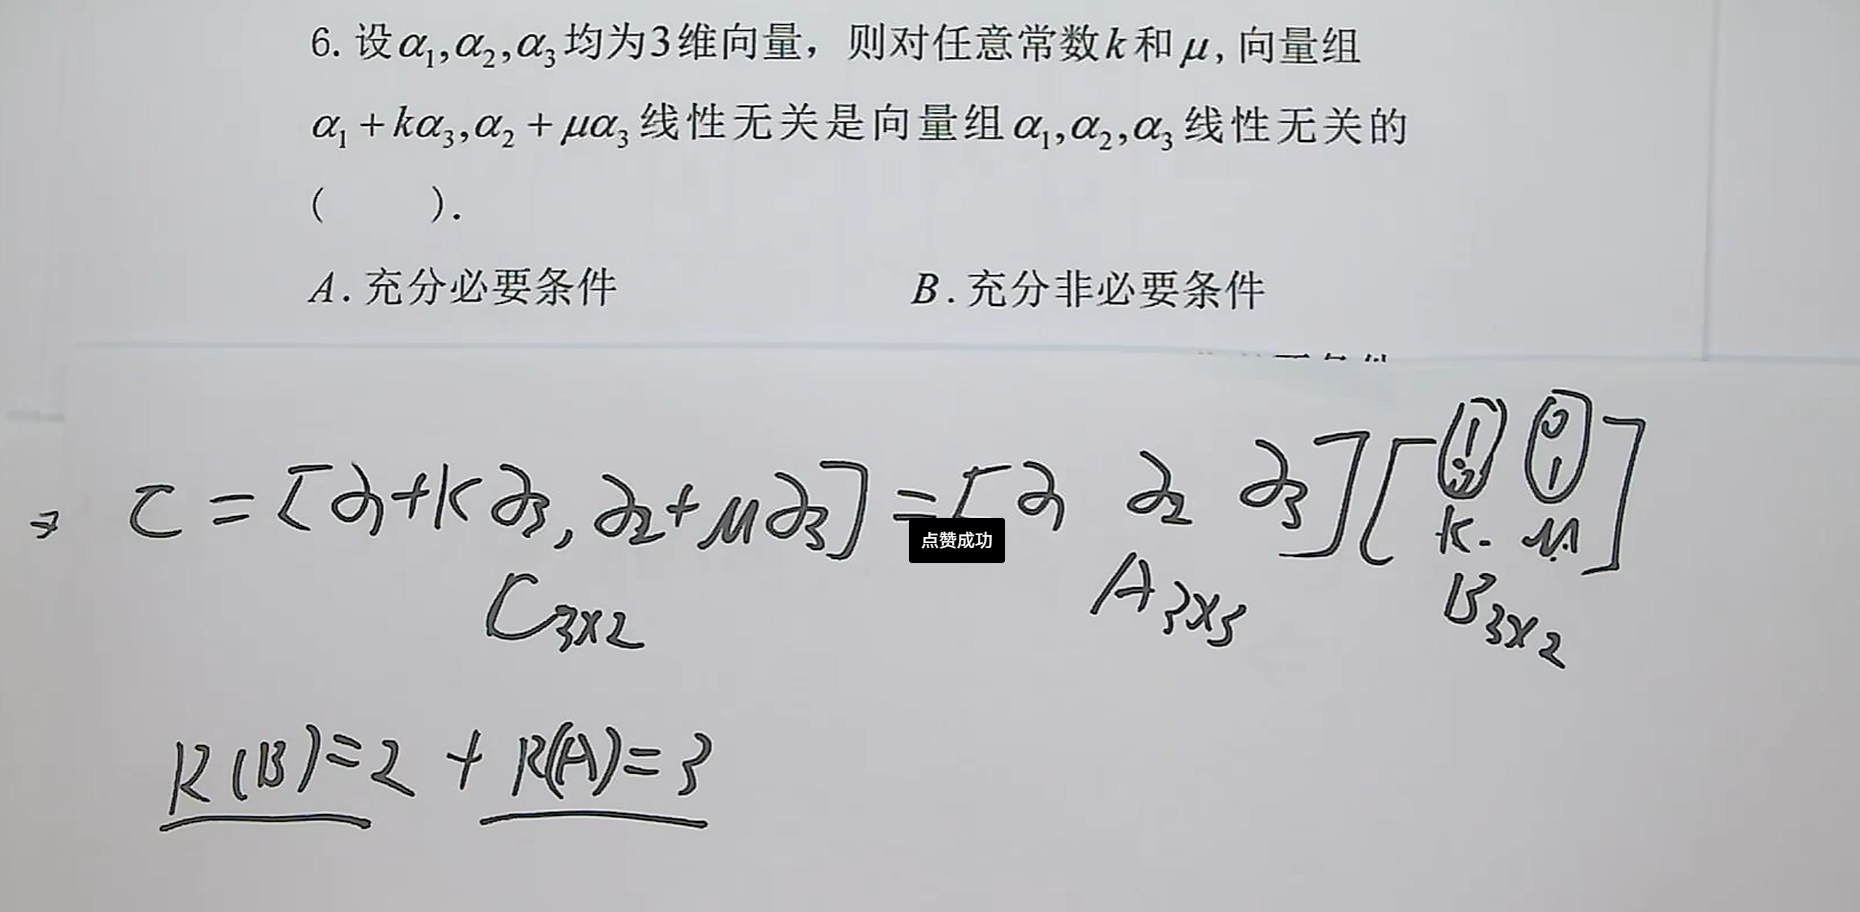 6. 设α₁,α₂,α₃均为3维向量，则对任意常数k和μ,向量组
α₁+kα₃,α₂+μα₃线性无关是向量组α₁,α₂,α₃线性无关的
(    ).
A.充分必要条件 B.充分非必要条件
⇒ C=[α₁+kα₃,α₂+μα₃]=[α₁ α₂ α₃][1 0
0 1
k μ]
点赞成功
C₃ₓ₂ A₃ₓ₃ B₃ₓ₂
R(B)=2 + R(A)=3